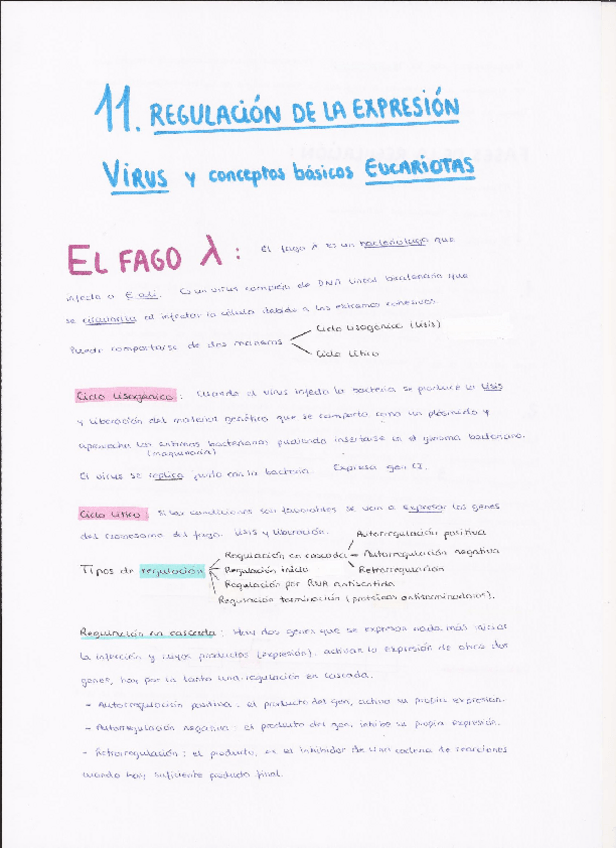 11. REGULACIÓN DE LA EXPRESIÓN
VIRUS y conceptos básicos EUCARIOTAS
EL FAGO λ : el fago λ es un bacteriofago que
infecta a E.coli. Es un virus complejo de DNA lineal bicatenario que
se circulariza al infectar la célula debido a los extremos cohesivos.
Puede comportarse de dos maneras
Ciclo lisogénico (lisis)
Ciclo lítico
Ciclo lisogénico : Cuando el virus infecta la bacteria se produce la lisis
y liberación del material genético que se comporta como un plásmido y
aprovecha las enzimas bacterianas pudiendo insertarse en el genoma bacteriano.
(maquinaria)
El virus se replica junto con la bacteria. Expresa gen CI.
Ciclo lítico : Si las condiciones son favorables se van a expresar los genes
del cromosoma del fago. Lisis y liberación.
Tipos de regulación
Regulación en cascada
Autorregulación positiva
Autorregulación negativa
Retrorregulación
Regulación inicio
Regulación por RNA antisentido
Regulación terminación (proteínas antiterminadoras).
Regulación en cascada : Hay dos genes que se expresan nada más iniciar
la infección y cuyos productos (expresión), activan la expresión de otros dos
genes, hay por lo tanto una regulación en cascada.
- Autorregulación positiva : el producto del gen, activa su propia expresión.
- Autorregulación negativa : el producto del gen, inhibe su propia expresión.
- Retrorregulación : el producto, es el inhibidor de una cadena de reacciones
cuando hay suficiente producto final.